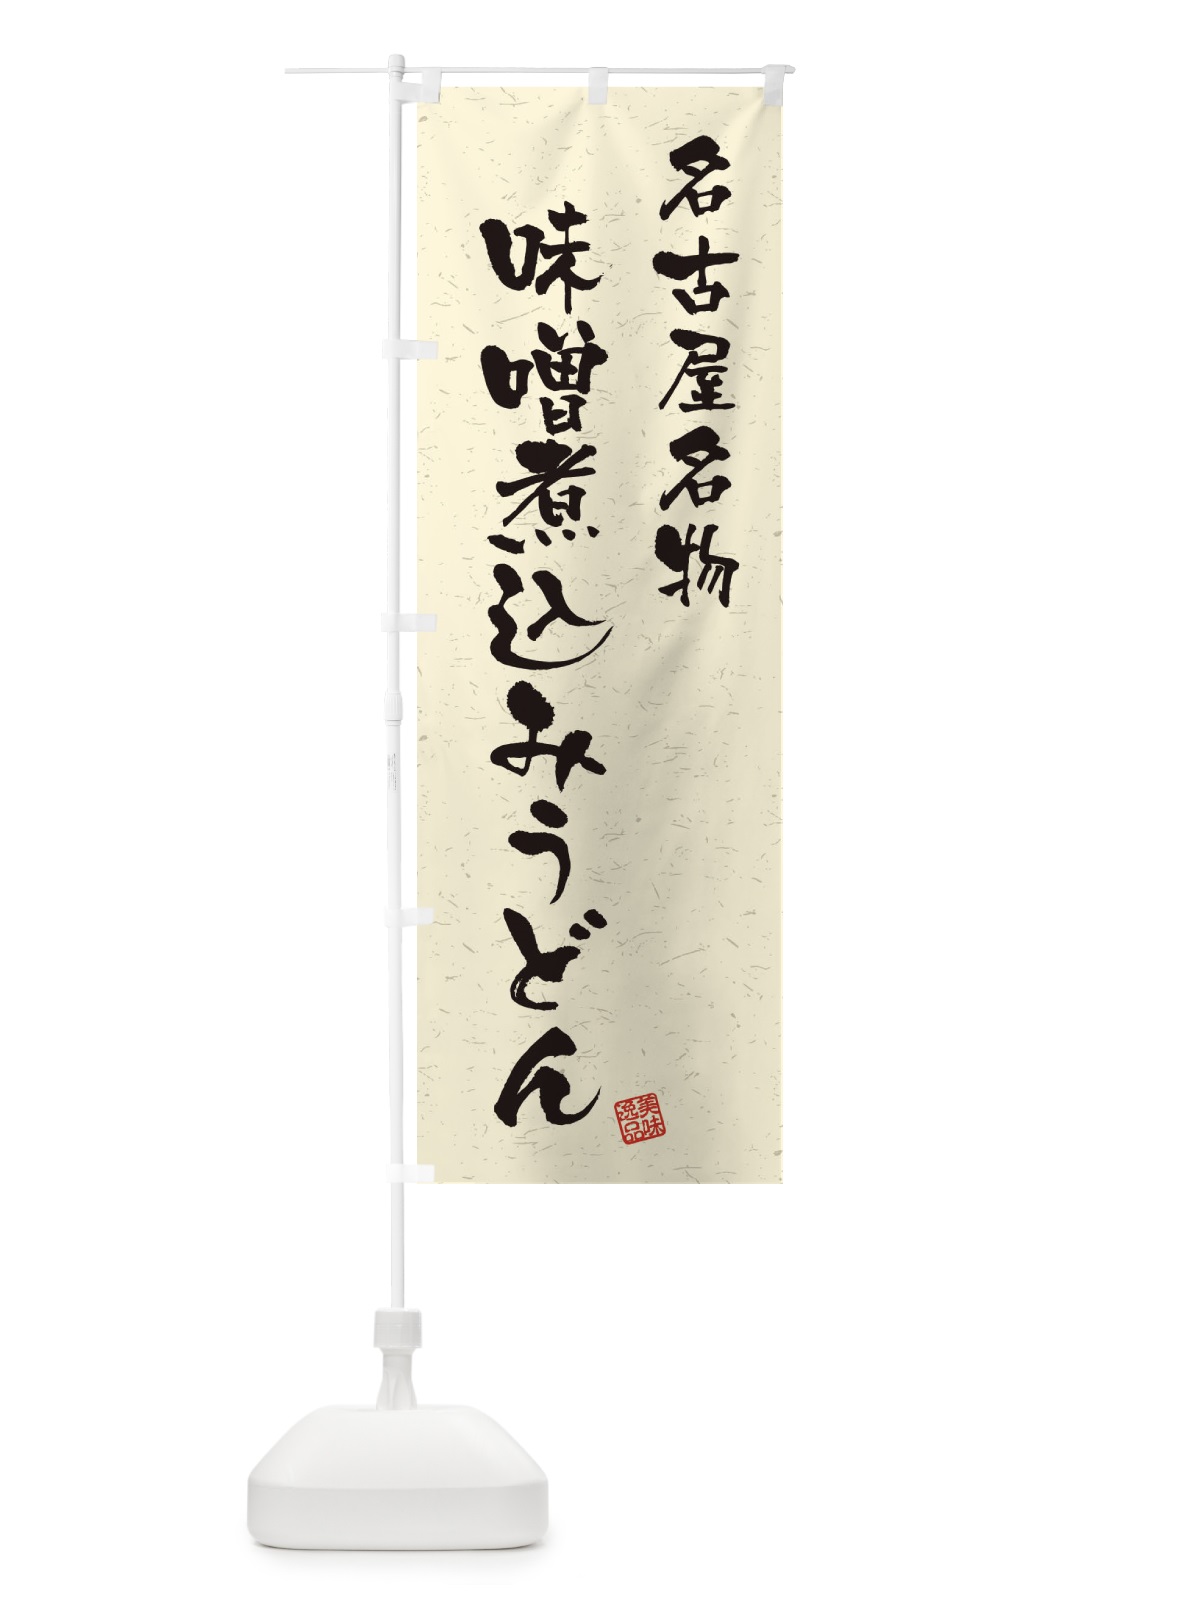 名古屋名物
味噌煮込みうどん
美味
逸品